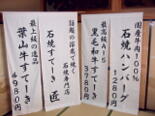 国産牛肉100%
石焼ハンバーグ
1280円
最高級A15
黒毛和牛すてーき
3780円
話題の溶岩で焼く
石焼専門店
石焼すてーき 匠
最上級の逸品
葉山牛すてーき
6980円